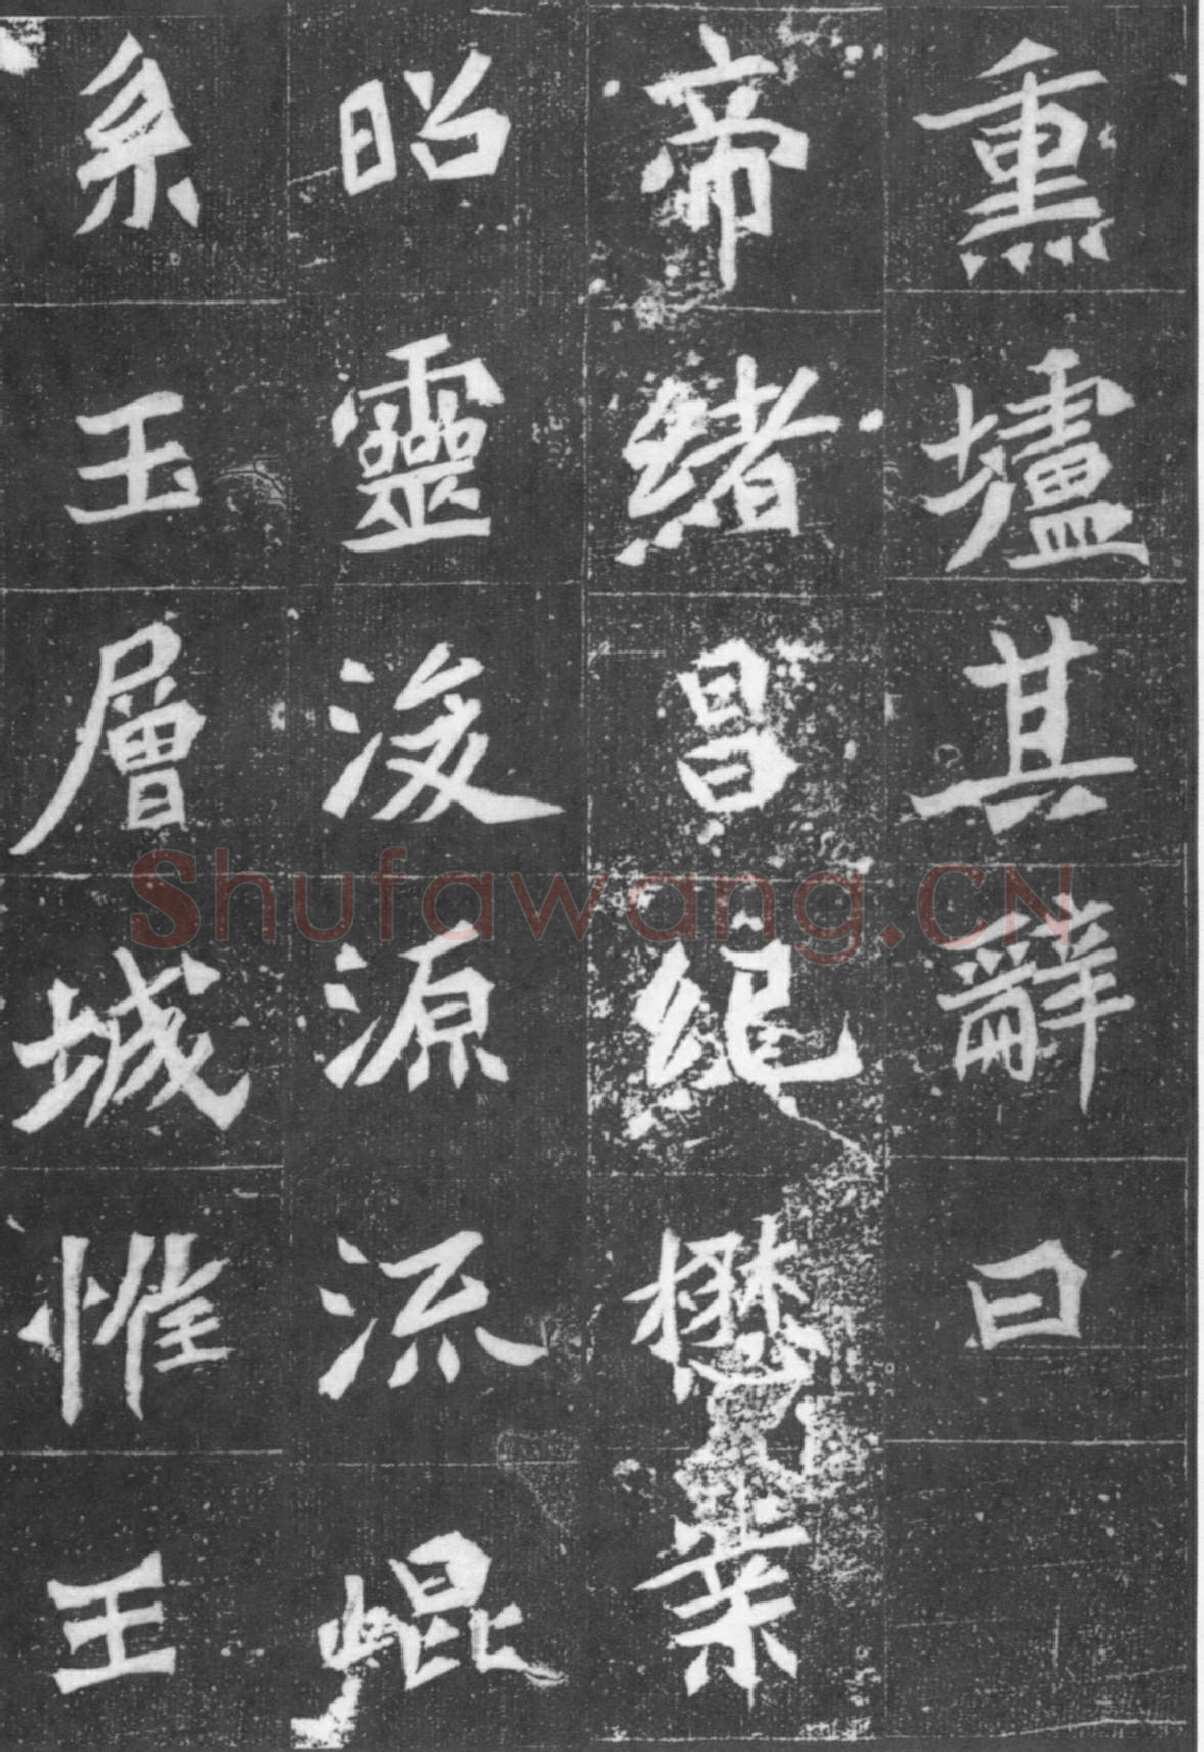 熏壚其辭曰
帝緒昌紀懋業
昭靈浚源流崐
系玉層城惟王
Shufawang.CN